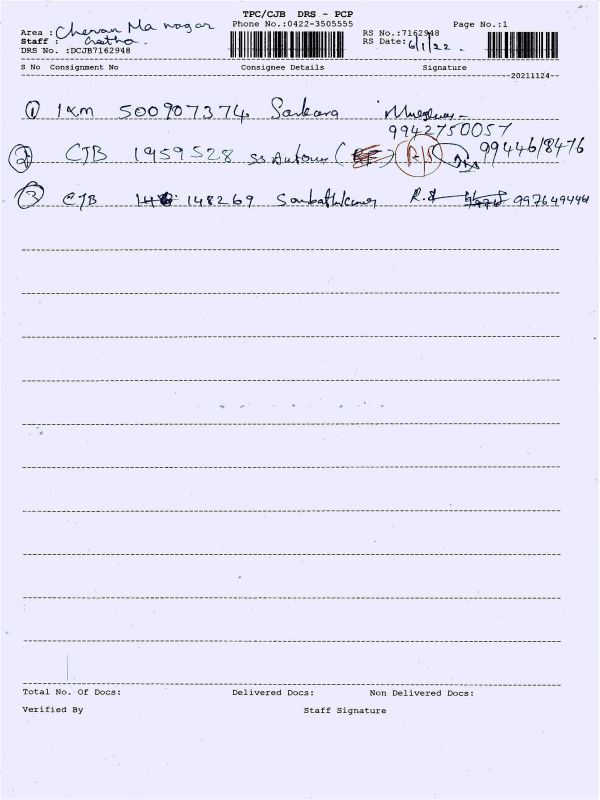 TPC/CJB DRS - PCP
Area : Cheran Ma nagar
Phone No.:0422-3505555
Page No.:1
Staff : Geetha.
RS No.:7162948
DRS No. :DCJB7162948
RS Date: 6/1/22.
S No Consignment No Consignee Details Signature
20211124
1 IXM 500907374 Sankara
9942750057
2 CJB 1959528 SS Automs 9944618476
3 CJB 148269 Sambathkumar R.S 9976494441
Total No. Of Docs: Delivered Docs: Non Delivered Docs:
Verified By Staff Signature